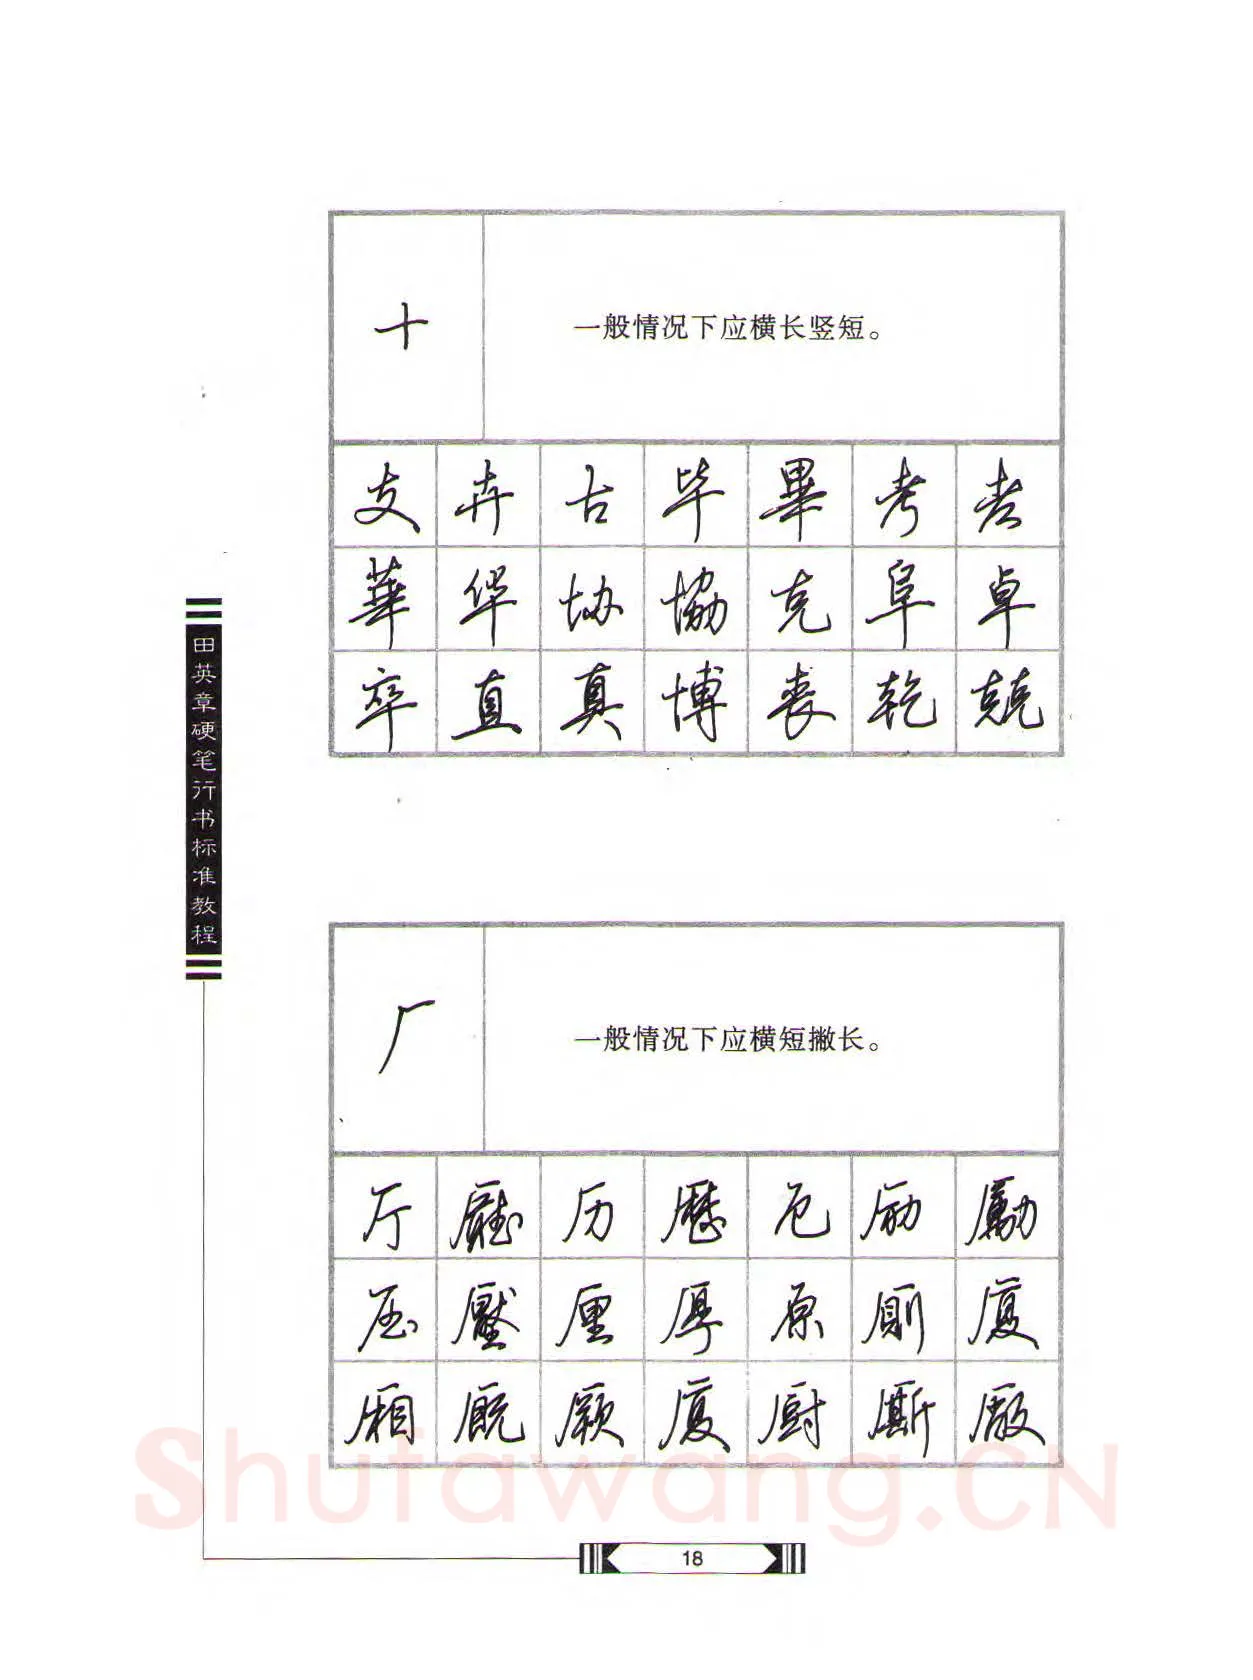 十
一般情况下应横长竖短。
支 卉 古 毕 畢 考
華 华 协 協 克 阜 卓
卒 直 真 博 丧 乾 兢
田英章硬笔行书标准教程
厂
一般情况下应横短撇长。
厅 廳 历 歷 厄 励 勵
压 壓 厘 厚 原 厠 厦
厢 厩 厦 厨 厮 厰
Shufawang.CN
18